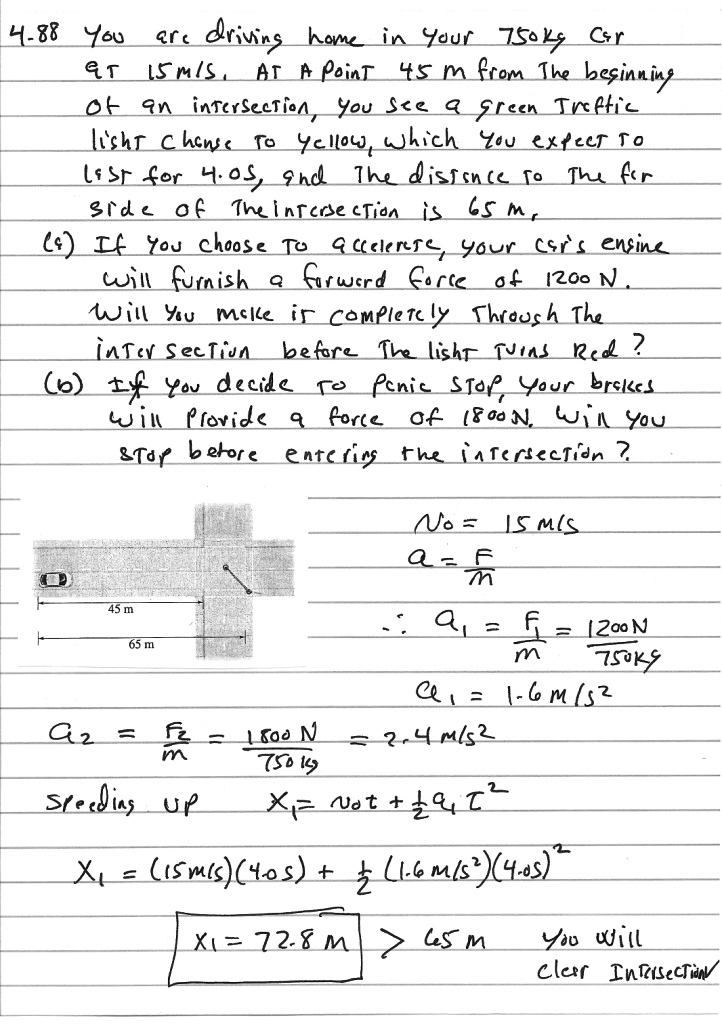 4-88 You are driving home in your 750kg car
at 15 m/s. At a point 45 m from the beginning
of an intersection, you see a green traffic
light change to yellow, which you expect to
last for 4.0s, and the distance to the far
side of the intersection is 65 m.
(a) If you choose to accelerate, your car's engine
will furnish a forward force of 1200 N.
Will you make it completely through the
intersection before the light turns red?
(b) If you decide to panic stop, your brakes
will provide a force of 1800N. Will you
stop before entering the intersection?
v₀ = 15 m/s
a = F/m
45 m
65 m
∴ a₁ = F₁/m = 1200N/750kg
a₁ = 1.6 m/s²
a₂ = F₂/m = 1800 N/750 kg = 2.4 m/s²
Speeding up x₁ = v₀t + ½a₁t²
x₁ = (15m/s)(4.0s) + ½ (1.6 m/s²)(4.0s)²
x₁ = 72.8 m > 65 m You will
clear intersection